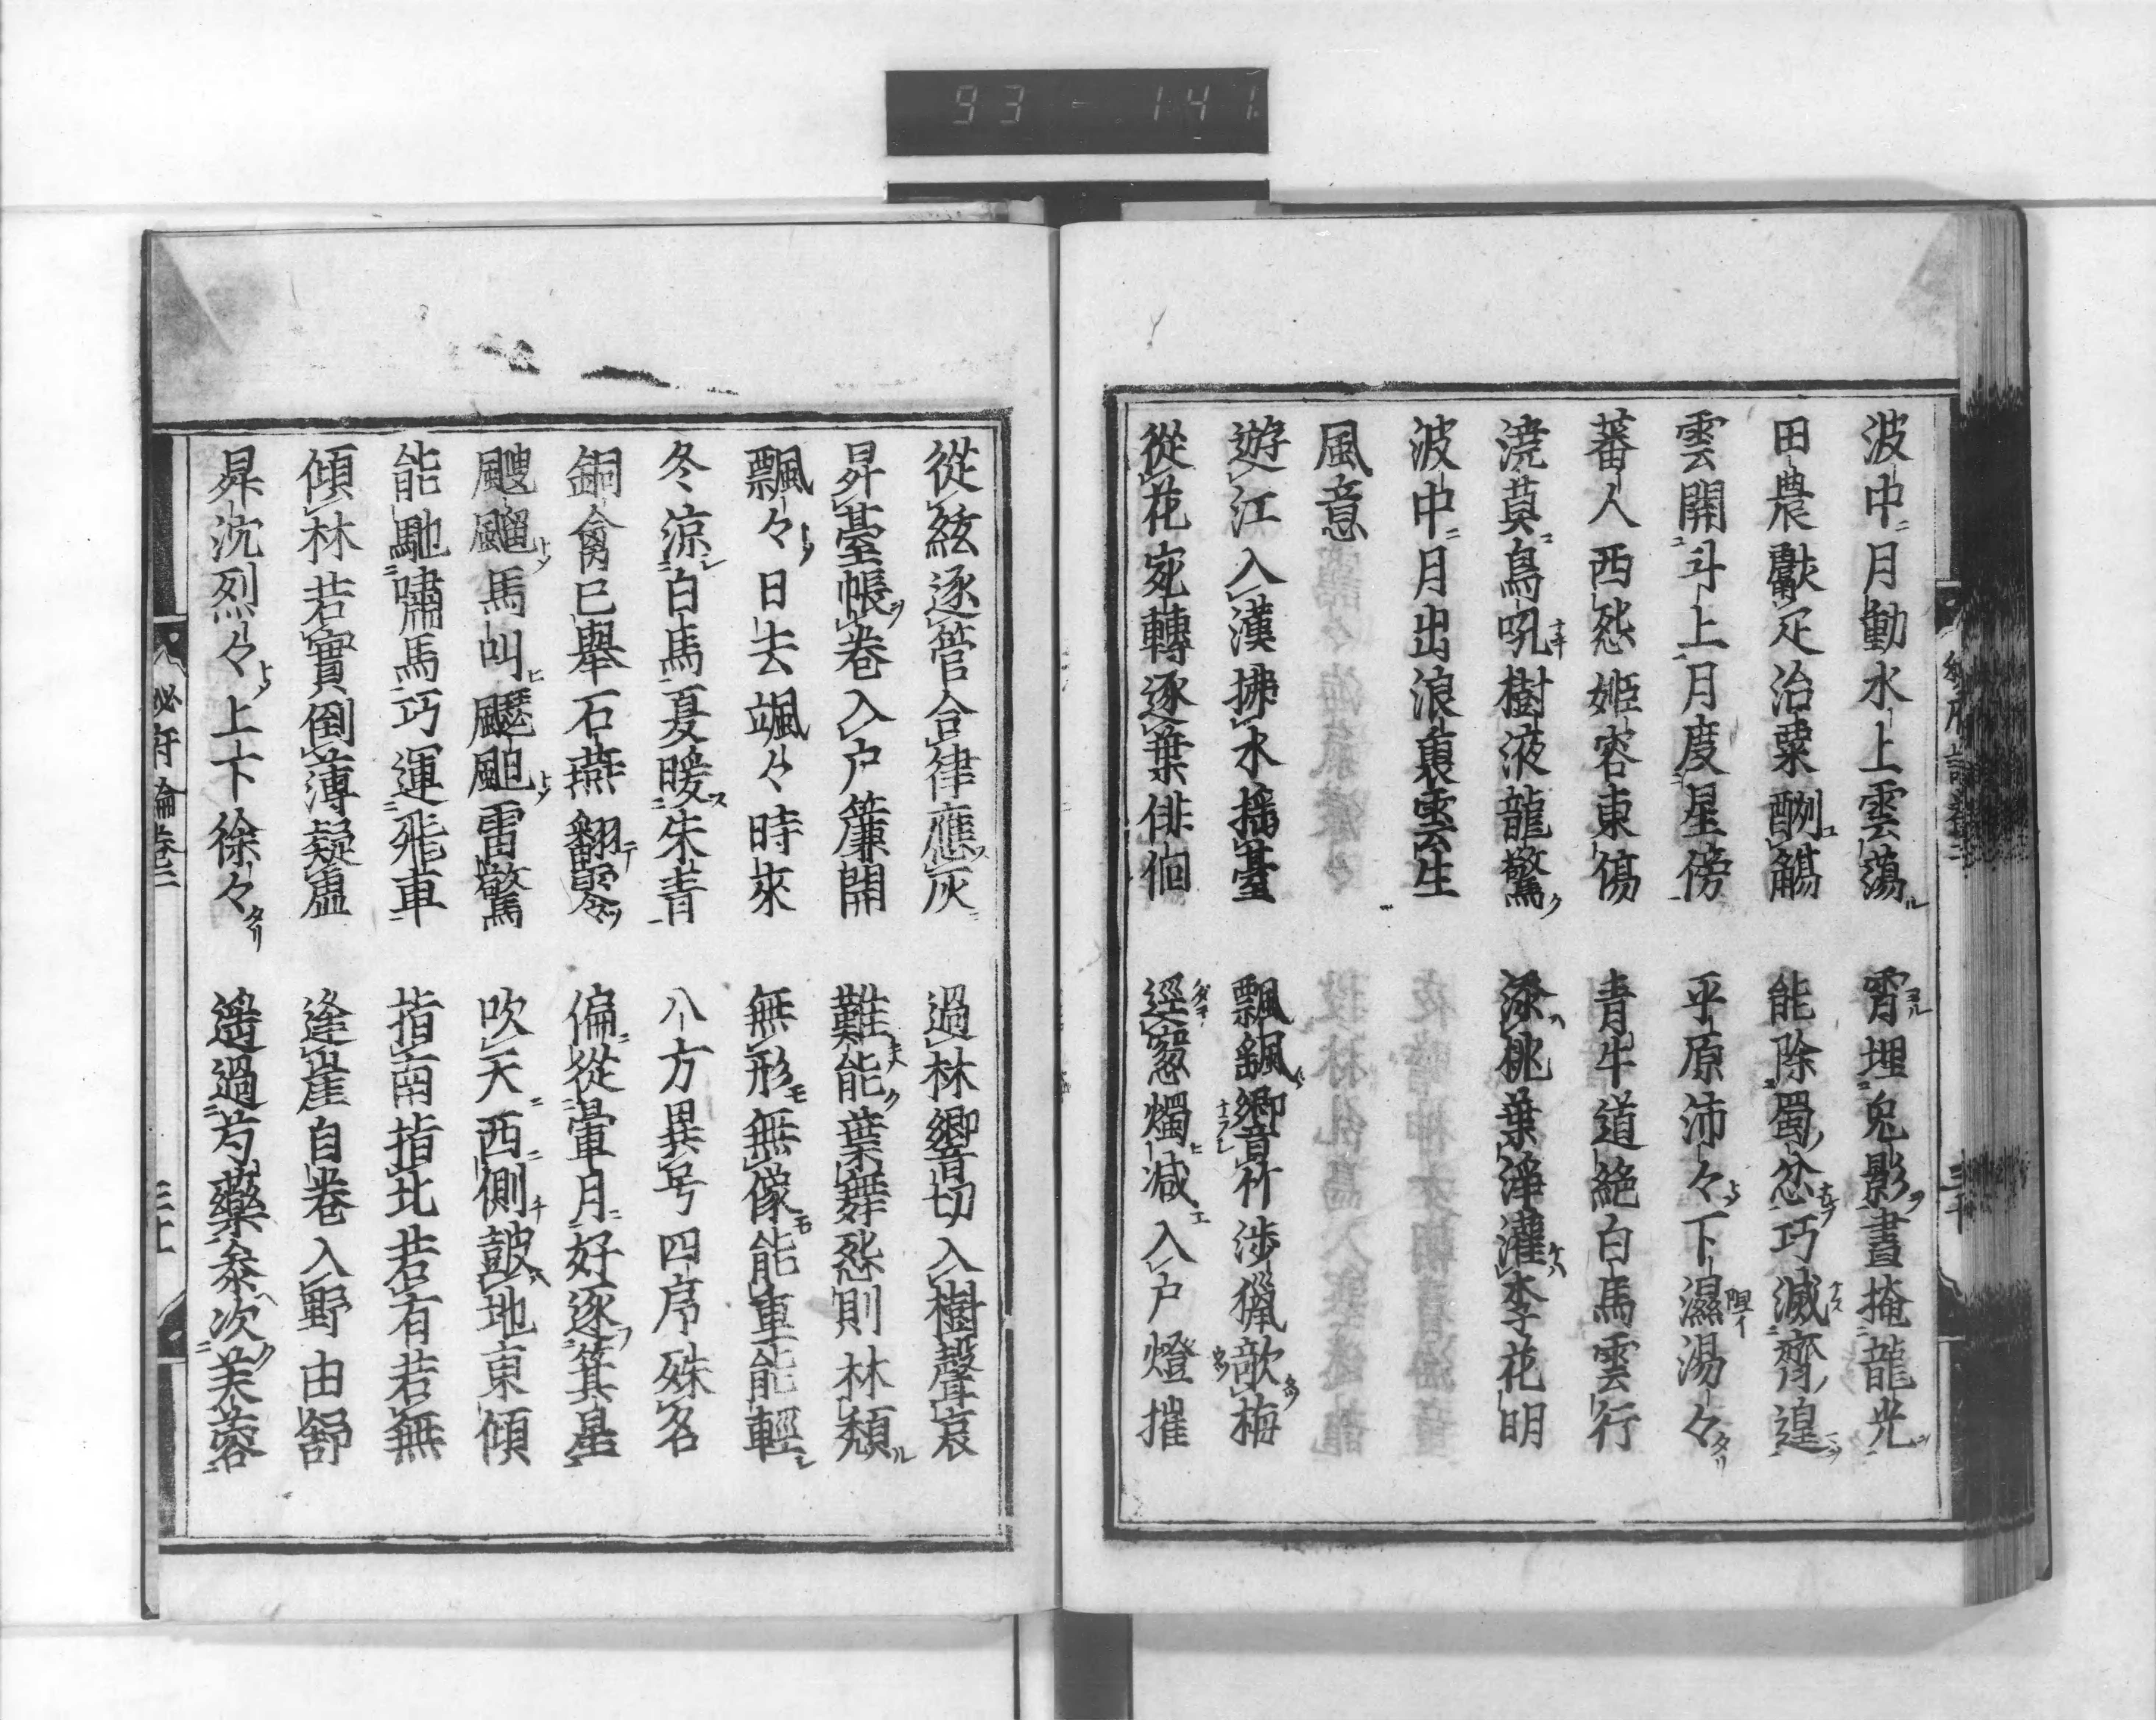 93 - 141
波中月動水上雲蕩 霄埋兔影晝掩龍光
田農獸疋治粟酬觴 能除蜀忿巧滅齊遑
雲開斗上月度星傍 乎原沛々下濕湯々
蕃人西怨姬容東傷 青牛道絶白馬雲行
澆莫鳥吼樹液龍驚 添桃葉淨灌李花明
波中月出浪裏雲生
風意
遊江入漢拂水搖臺 飄颻響竹渉獵歆梅
從花宛轉逐葉俳佪 逕窓燭滅入戸燈摧
從絃逐管合律應灰 過林響切入樹聲哀
昇臺帳卷入戸簾開 難能葉舞怨則林頽
飄々日去颯々時來 無形無像能重能輕
冬涼白馬夏暖朱青 八方異号四序殊名
銅禽已舉石燕翻零 偏從暈月好逐箕星
颼飀馬叫雷驚 吹天西側皷地東傾
能馳嘯馬巧運飛車 指南指北若有若無
傾林若實倒薄疑虛 逢崖自卷入野由舒
昇沈烈々上下徐々 遙過芍藥參次芙蓉
秘府論卷三